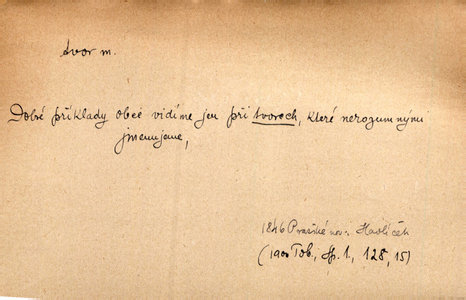 tvor m.
Dobré příklady obcí vidíme jen při tvorech, které nerozumnými
jmenujeme,
1846 Pražské nov. Havlíček
(1900 Tob., sp. 1, 128, 15)